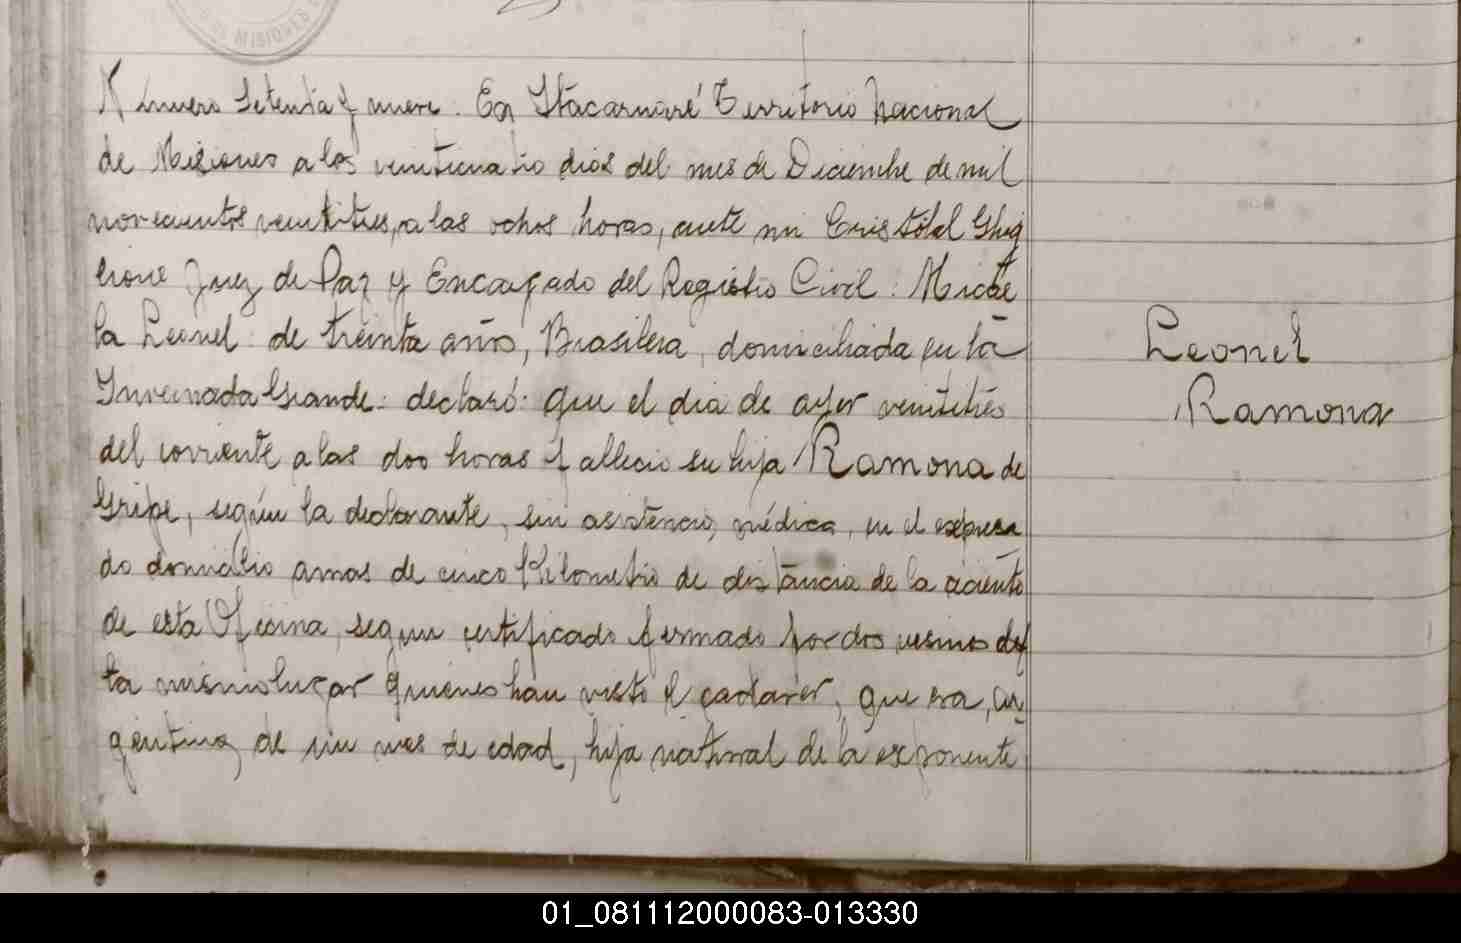 DE MISIONES
Número Setenta y nueve. En Itacaruaré Territorio Nacional
de Misiones a los veinticuatro dias del mes de Diciembre de mil
novecientos veintitres, a las ochos horas, ante mi Cristóbal Ghig
lione Juez de Paz y Encargado del Registro Civil: Micae
la Leonel: de treinta años, Brasilera, domiciliada en la
Invernada Grande: declaró: que el dia de ayer veintitrés
del corriente a las dos horas fallecio su hija Ramona de
Gripe, según la declarante, sin asistencia médica, en el expresa
do domicilio amas de cinco Kilometro de distancia de la aciento
de esta Oficina, segun certificado firmado por dos vesinos des
ta mismo lugar quienes han visto el cadaver, que era, ar
gentina, de un mes de edad, hija natural de la exponente
Leonel
Ramona
01_081112000083-013330